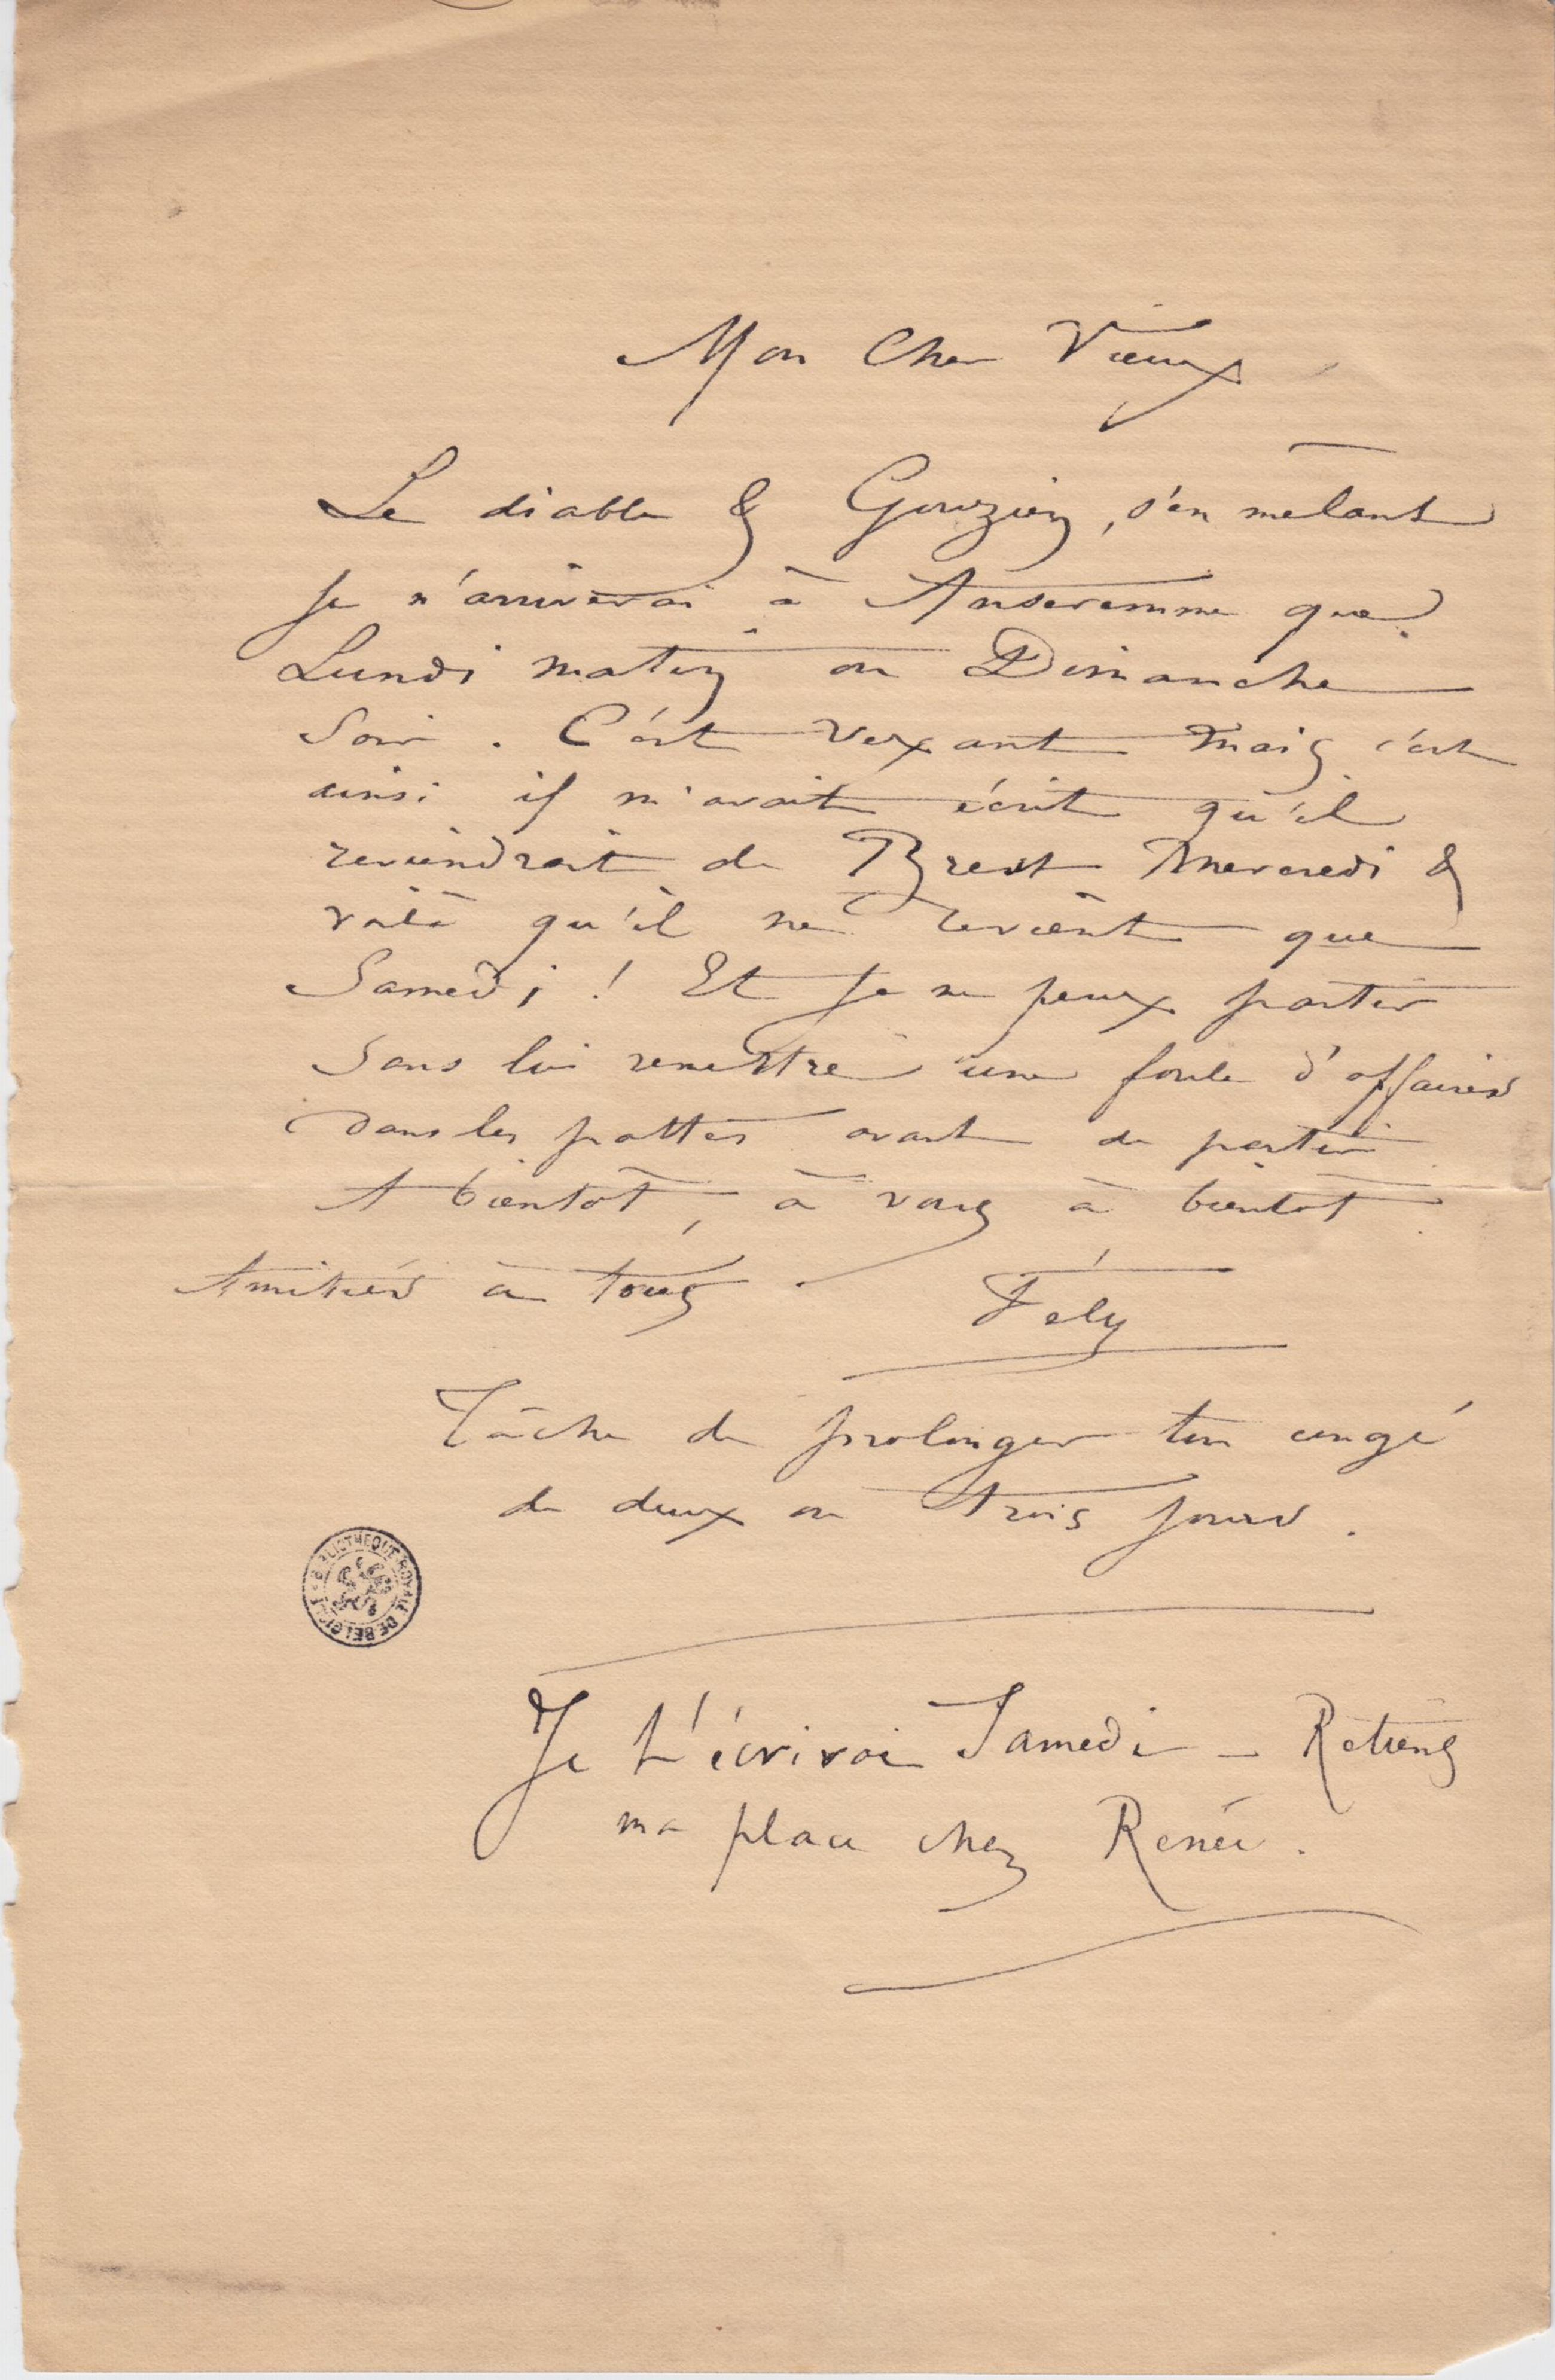 Mon Cher Vieux
Le diable & Gouzien, s'en mêlant
je n'arriverai à Anseremme que
Lundi matin ou Dimanche
Soir. C'est vexant mais c'est
ainsi il m'avait écrit qu'il
reviendrait de Brest Mercredi &
voilà qu'il ne revient que
Samedi ! Et je ne peux partir
sans lui remettre une foule d'affaires
dans les pattes avant de partir
A bientôt, à vous à bientôt
Amitiés à tous. Fély
Tâche de prolonger ton congé
de deux ou trois jours.
BIBLIOTHEQUE ROYALE DE BELGIQUE
Je t'écrirai Samedi – Retiens
ma place chez Renée.